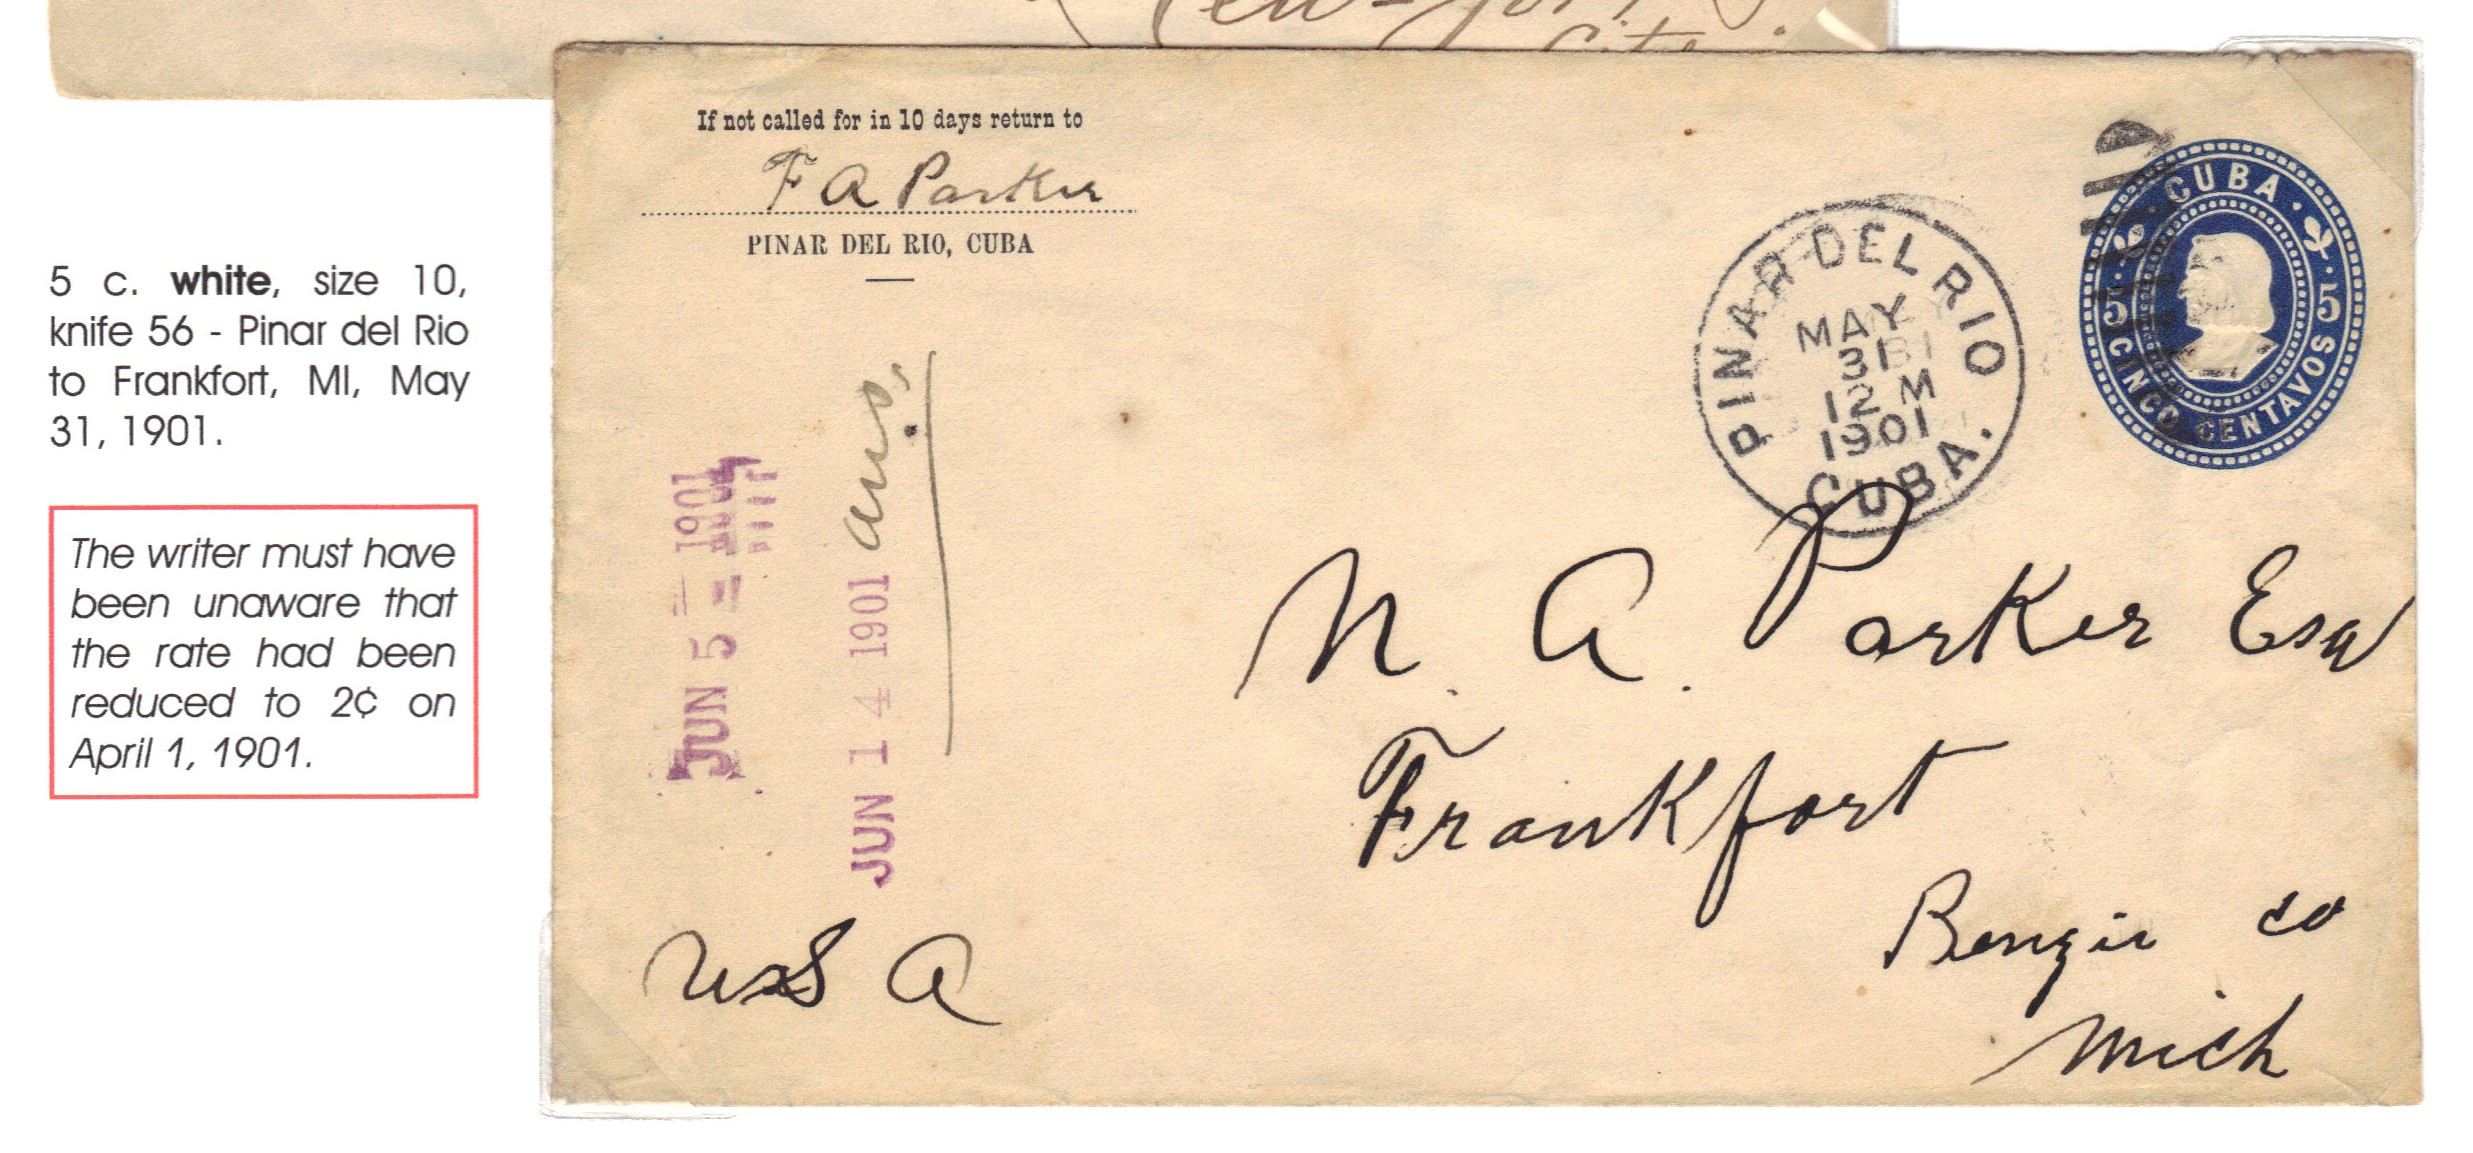 New York
City.
5 c. white, size 10,
knife 56 - Pinar del Rio
to Frankfort, MI, May
31, 1901.
The writer must have
been unaware that
the rate had been
reduced to 2¢ on
April 1, 1901.
If not called for in 10 days return to
F A Parker
PINAR DEL RIO, CUBA
PINAR DEL RIO
MAY
31
12 M
1901
CUBA.
CUBA
5 5
CINCO CENTAVOS
JUN 5 - 1901
JUN 14 1901 ans.
N. A. Parker Esq
Frankfort
Benzie co
Mich
USA